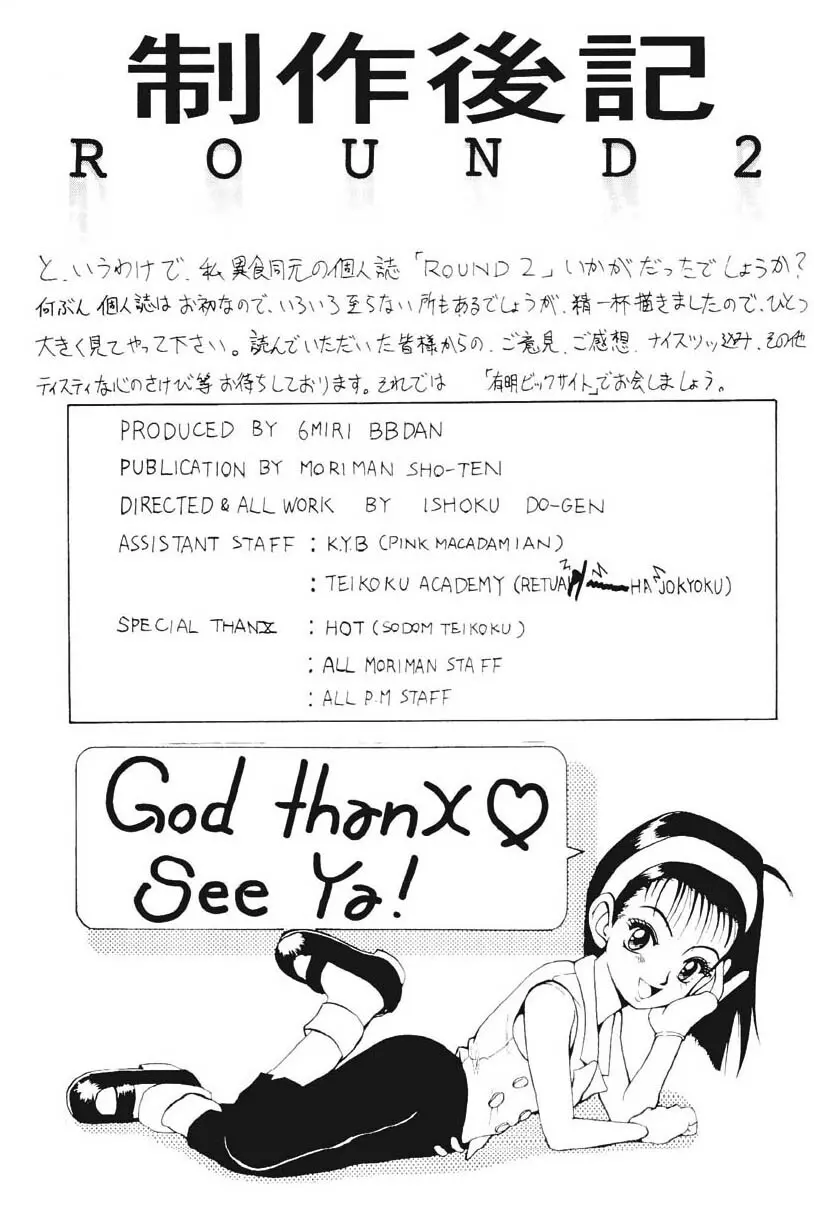 制作後記
ROUND2
と、いうわけで、私 異食同元の個人誌「ROUND 2」いかがだったでしょうか?
何ぶん個人誌はお初なので、いろいろ至らない所もあるでしょうが、精一杯描きましたので、ひとつ
大きく見てやって下さい。読んでいただいた皆様からの、ご意見、ご感想、ナイスツッ込み、その他
ティスティな心のさけび等お待ちしております。それでは 「有明ビックサイト」でお会しましょう。
PRODUCED BY 6MIRI BBDAN
PUBLICATION BY MORIMAN SHO-TEN
DIRECTED & ALL WORK BY ISHOKU DO-GEN
ASSISTANT STAFF : K.Y.B (PINK MACADAMIAN)
: TEIKOKU ACADEMY (RETUA HA JOKYOKU)
SPECIAL THANX : HOT (SODOM TEIKOKU)
: ALL MORIMAN STAFF
: ALL P.M STAFF
God thanX♡
See Ya!